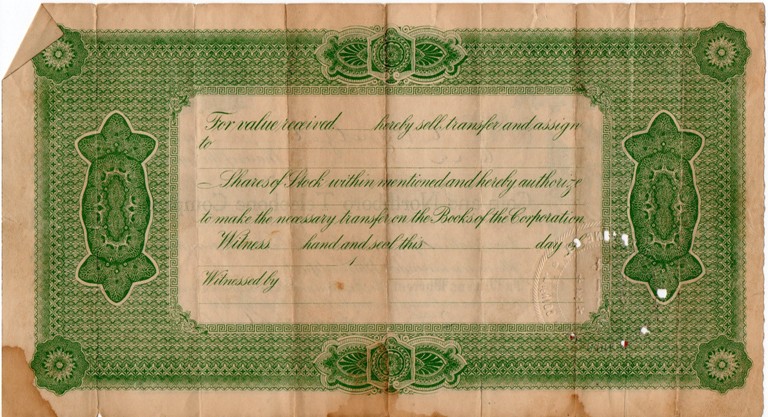 For value received hereby sell, transfer and assign
to
Shares of Stock within mentioned and hereby authorize
to make the necessary transfer on the Books of the Corporation
Witness hand and seal this day
Witnessed by